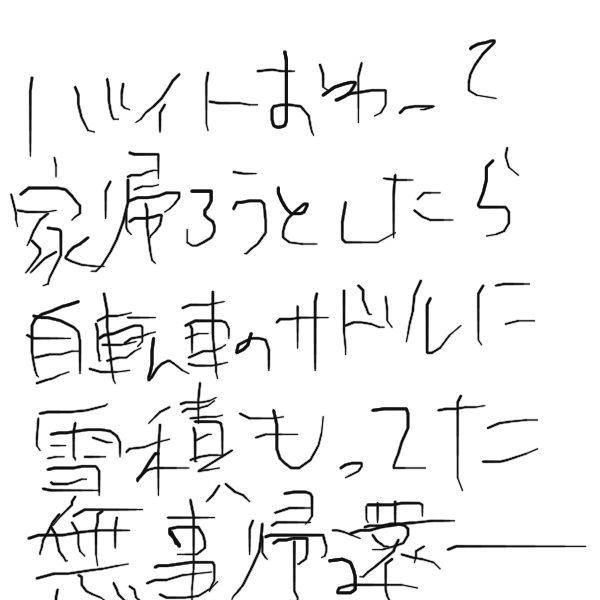 バイトおわって
家帰ろうとしたら
自転車のサドルに
雪積もってた
無事帰還——